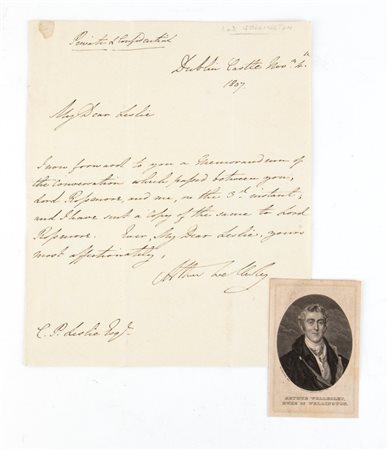 Private & Confidential
Dublin Castle Novr. 4th
1807
My Dear Leslie
I now forward to you a Memorandum of
the Conversation which passed between you,
Lord Rossmore, and me, on the 3d. instant;
and I have sent a Copy of the same to Lord
Rossmore. Ever, My Dear Leslie, yours
most affectionately,
Arthur Wellesley
C. P. Leslie Esqr.
ARTHUR WELLESLEY,
DUKE OF WELLINGTON.